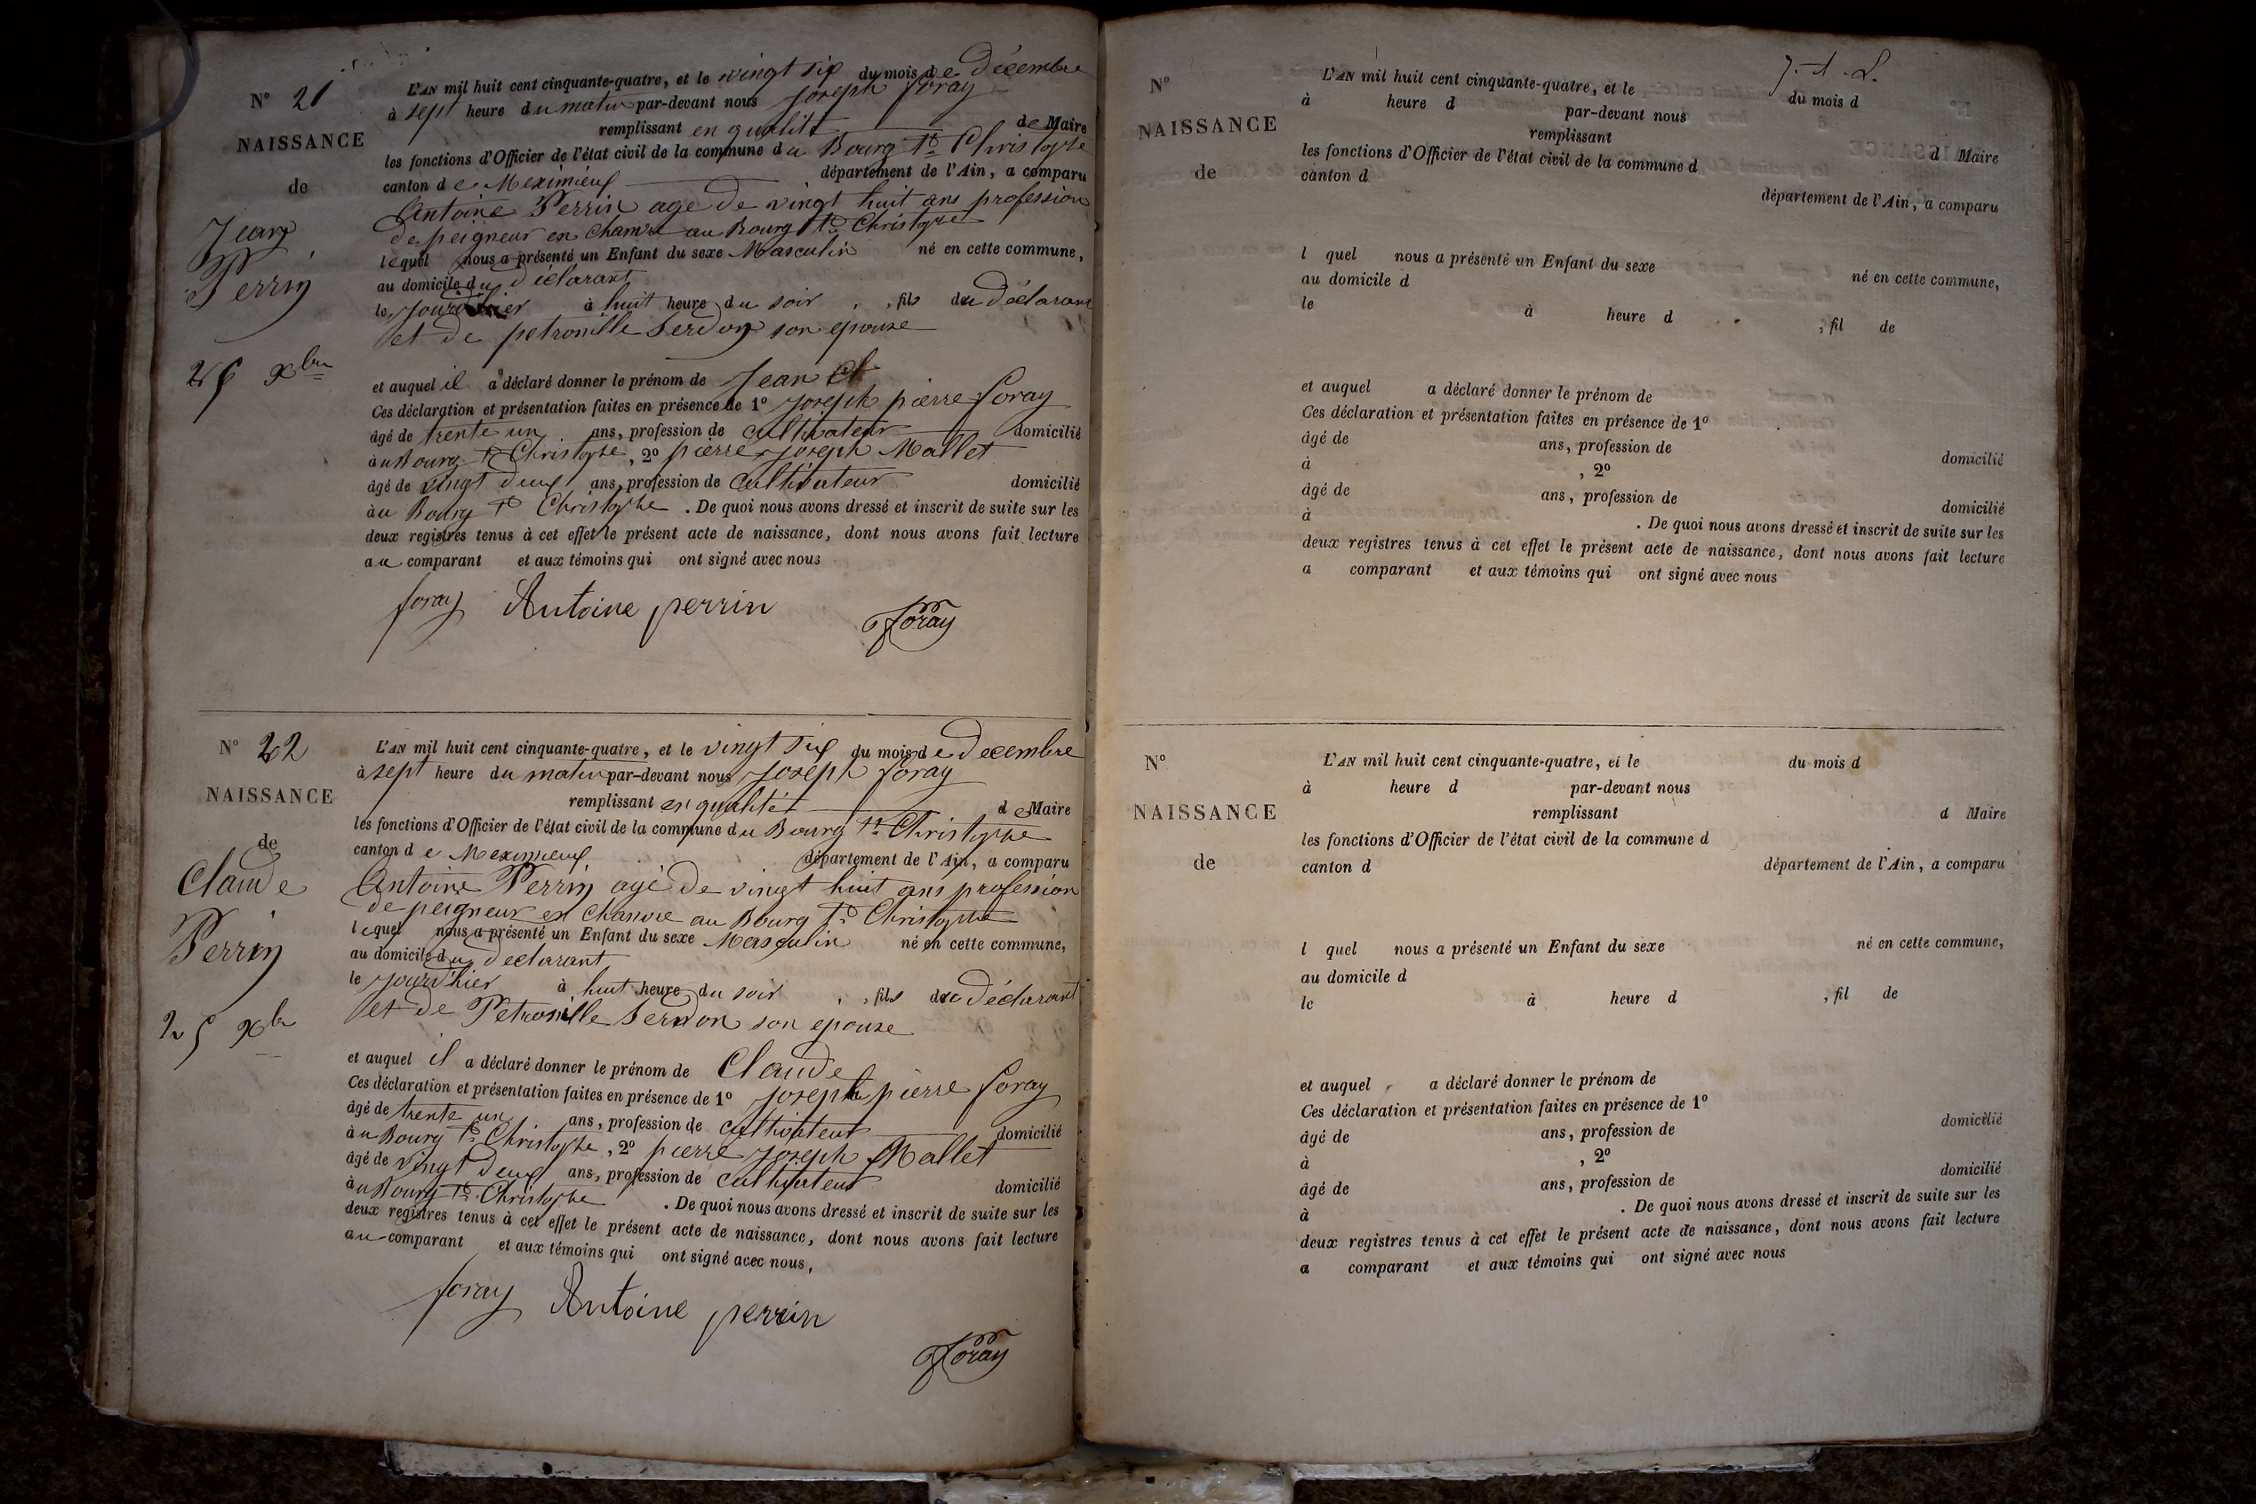 N° 21
NAISSANCE
de
Jean
Perrin
25 xbre
L'AN mil huit cent cinquante-quatre, et le vingt six du mois de Décembre
à sept heure du matin par-devant nous Joseph foray
remplissant en qualité de Maire
les fonctions d'Officier de l'état civil de la commune du Bourg St Christophe
canton de Meximieux département de l'Ain, a comparu
Antoine Perrin age de vingt huit ans profession
de peigneur en chanvre au Bourg St Christophe
lequel nous a présenté un Enfant du sexe Masculin né en cette commune,
au domicile du déclarant
le jourd'hier à huit heure du soir, fils du déclarant
et de petronille Serdon son epouse
et auquel il a déclaré donner le prénom de Jean
Ces déclaration et présentation faites en présence de 1° Joseph pierre foray
âgé de trente un ans, profession de cultivateur domicilié
au Bourg St Christophe, 2° pierre Joseph Mallet
âgé de vingt deux ans, profession de cultivateur domicilié
au Bourg St Christophe. De quoi nous avons dressé et inscrit de suite sur les
deux registres tenus à cet effet le présent acte de naissance, dont nous avons fait lecture
au comparant et aux témoins qui ont signé avec nous
foray Antoine perrin foray
N° 22
NAISSANCE
de
Claude
Perrin
25 xbr
L'AN mil huit cent cinquante-quatre, et le vingt six du mois de Decembre
à sept heure du matin par-devant nous Joseph foray
remplissant en qualité de Maire
les fonctions d'Officier de l'état civil de la commune du Bourg St Christophe
canton de Meximieux département de l'Ain, a comparu
Antoine Perrin agé de vingt huit ans profession
de peigneur en chanvre au Bourg St Christophe
lequel nous a présenté un Enfant du sexe Masculin né en cette commune,
au domicile du declarant
le jourd'hier à huit heure du soir, fils du déclarant
et de Petronille Serdon son epouse
et auquel il a déclaré donner le prénom de Claude
Ces déclaration et présentation faites en présence de 1° Joseph pierre foray
âgé de trente un ans, profession de cultivateur domicilié
au Bourg St Christophe, 2° pierre Joseph Mallet
âgé de vingt deux ans, profession de cultivateur domicilié
au Bourg St Christophe. De quoi nous avons dressé et inscrit de suite sur les
deux registres tenus à cet effet le présent acte de naissance, dont nous avons fait lecture
au comparant et aux témoins qui ont signé avec nous,
foray Antoine perrin
foray
N°
NAISSANCE
de
L'AN mil huit cent cinquante-quatre, et le du mois d
à heure d par-devant nous
remplissant d Maire
les fonctions d'Officier de l'état civil de la commune d
canton d département de l'Ain, a comparu
l quel nous a présenté un Enfant du sexe né en cette commune,
au domicile d
le à heure d , fil de
et auquel a déclaré donner le prénom de
Ces déclaration et présentation faites en présence de 1°
âgé de ans, profession de domicilié
à , 2°
âgé de ans, profession de domicilié
à . De quoi nous avons dressé et inscrit de suite sur les
deux registres tenus à cet effet le présent acte de naissance, dont nous avons fait lecture
a comparant et aux témoins qui ont signé avec nous
N°
NAISSANCE
de
L'AN mil huit cent cinquante-quatre, et le du mois d
à heure d par-devant nous
remplissant d Maire
les fonctions d'Officier de l'état civil de la commune d
canton d département de l'Ain, a comparu
l quel nous a présenté un Enfant du sexe né en cette commune,
au domicile d
le à heure d , fil de
et auquel a déclaré donner le prénom de
Ces déclaration et présentation faites en présence de 1°
âgé de ans, profession de domicilié
à , 2°
âgé de ans, profession de domicilié
à . De quoi nous avons dressé et inscrit de suite sur les
deux registres tenus à cet effet le présent acte de naissance, dont nous avons fait lecture
a comparant et aux témoins qui ont signé avec nous